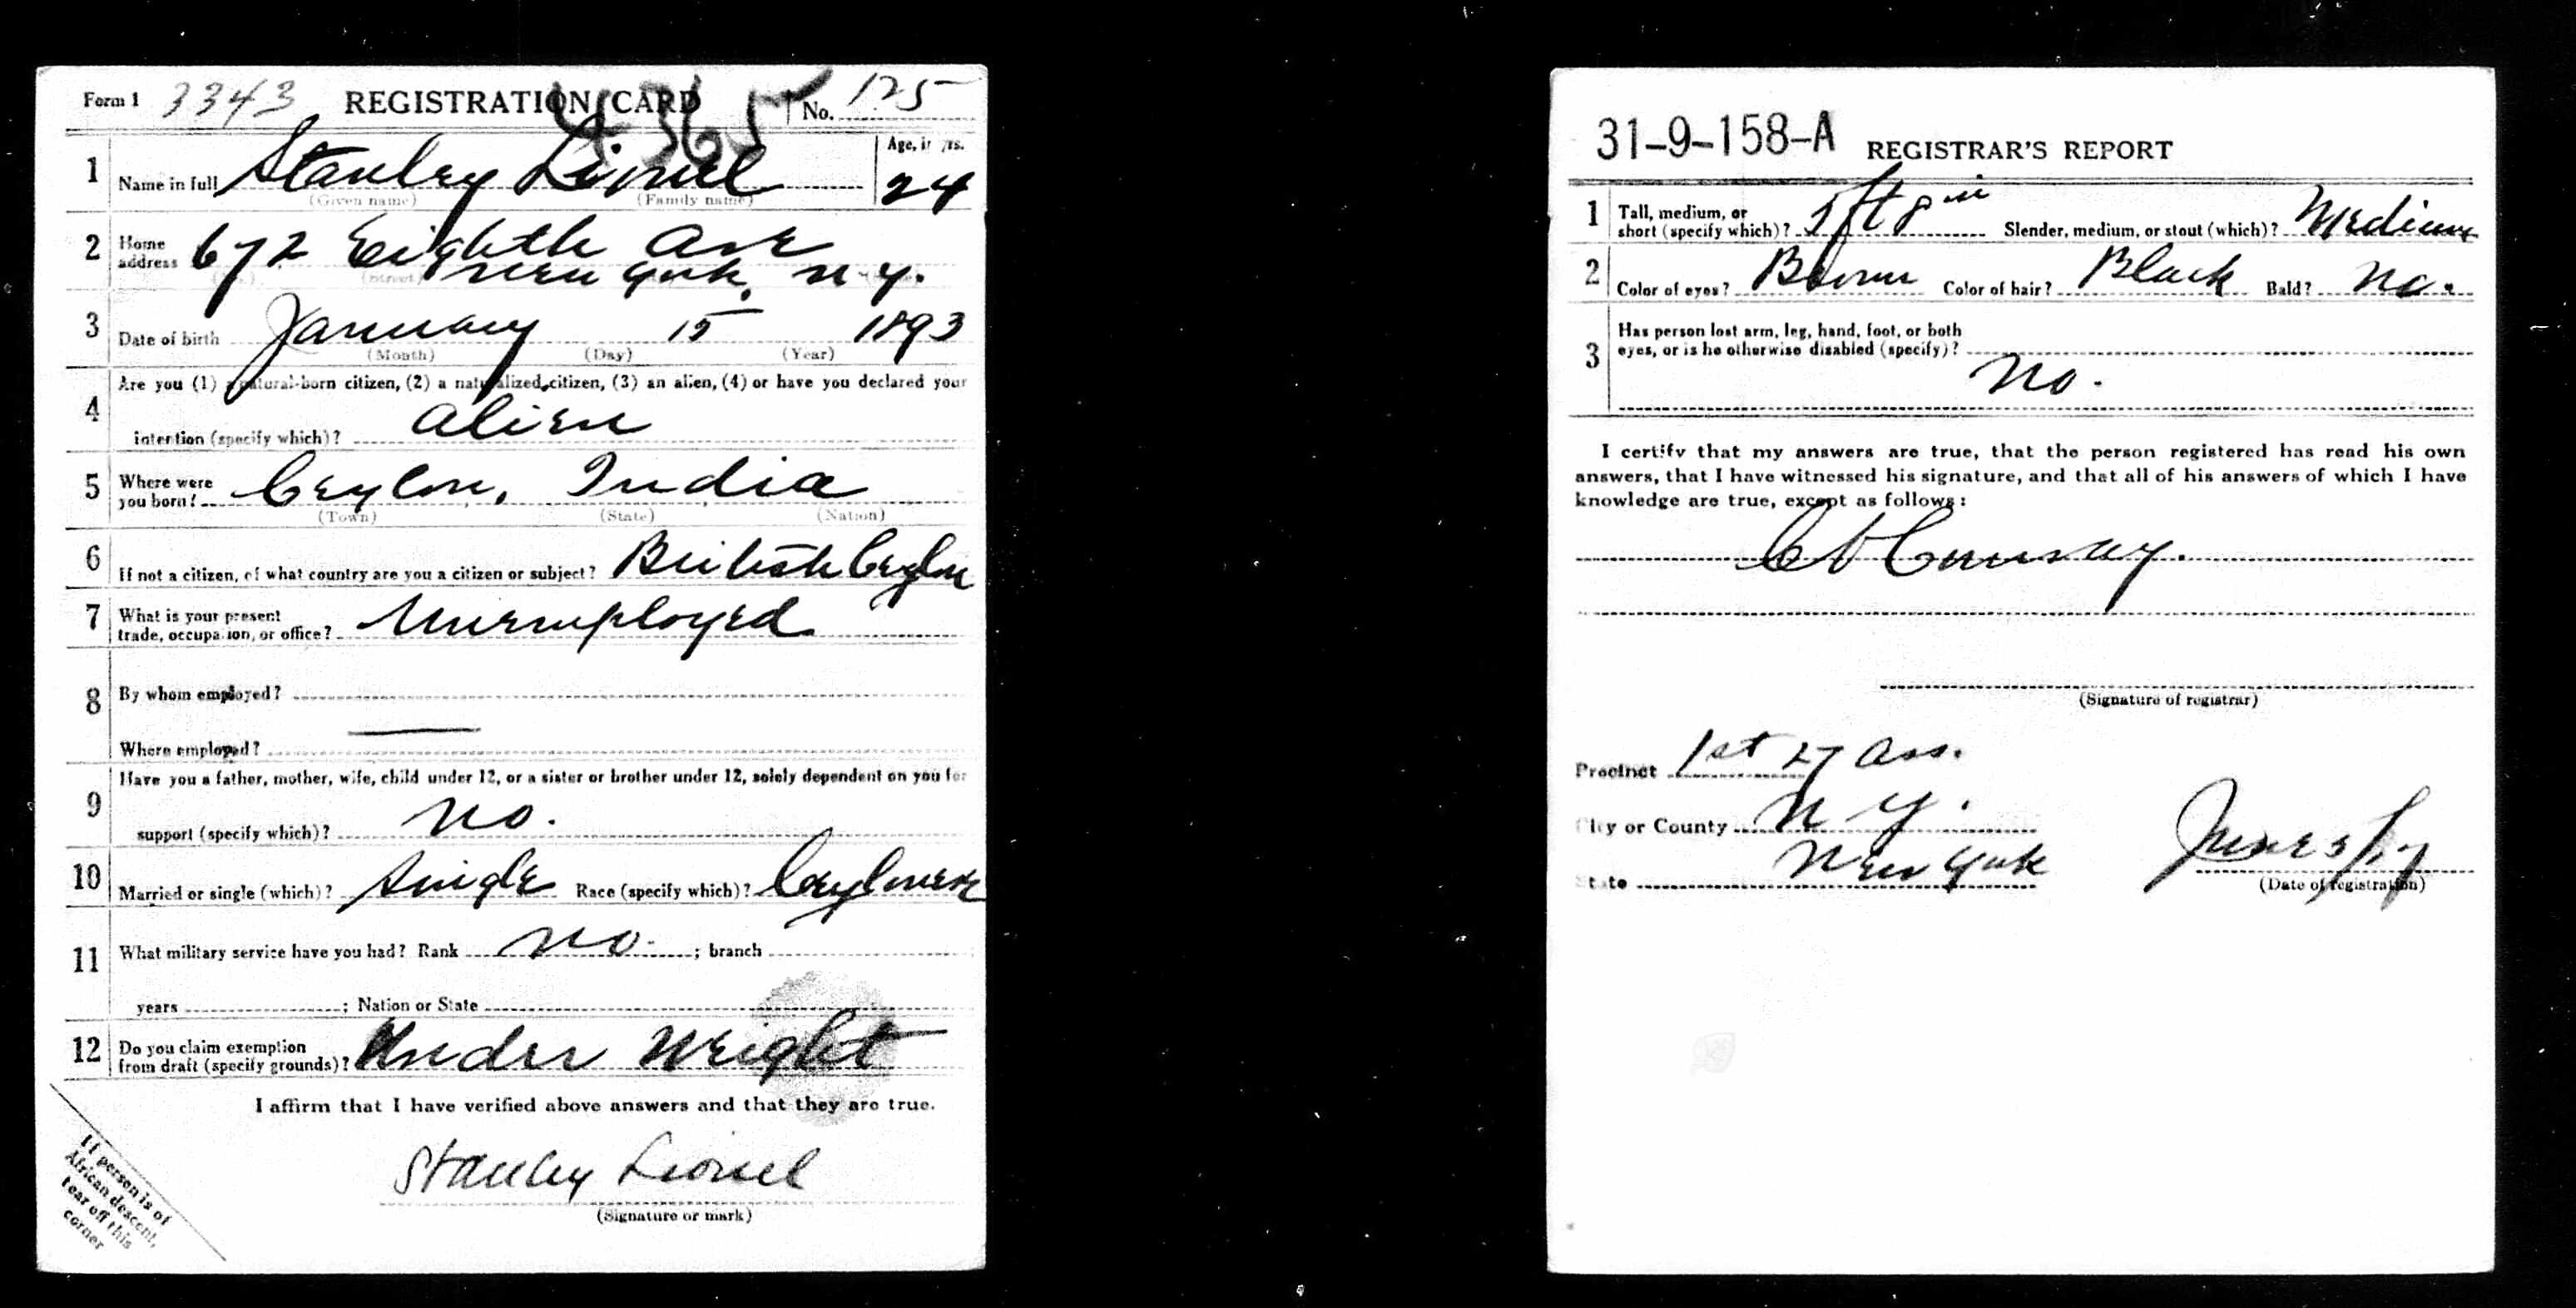 Form 1 3343 REGISTRATION CARD No. 125
4365
1 Name in full Stanley Lionel Age, in yrs. 24
(Given name) (Family name)
2 Home address 672 Eighth Ave
New York, N.Y.
3 Date of birth January 15 1893
(Month) (Day) (Year)
4 Are you (1) a natural-born citizen, (2) a naturalized citizen, (3) an alien, (4) or have you declared your
intention (specify which)? alien
5 Where were you born? Ceylon, India
(Town) (State) (Nation)
6 If not a citizen, of what country are you a citizen or subject? British Ceylon
7 What is your present trade, occupation, or office? Unemployed
8 By whom employed?
Where employed? —
9 Have you a father, mother, wife, child under 12, or a sister or brother under 12, solely dependent on you for
support (specify which)? No.
10 Married or single (which)? Single Race (specify which)? Ceylonese
11 What military service have you had? Rank no. ; branch
years ; Nation or State
12 Do you claim exemption from draft (specify grounds)? Under Weight
I affirm that I have verified above answers and that they are true.
Stanley Lionel
(Signature or mark)
If person is of
African descent,
tear off this
corner
31-9-158-A REGISTRAR'S REPORT
1 Tall, medium, or short (specify which)? 5 ft 8 in Slender, medium, or stout (which)? Medium
2 Color of eyes? Brown Color of hair? Black Bald? No.
3 Has person lost arm, leg, hand, foot, or both
eyes, or is he otherwise disabled (specify)?
No.
I certify that my answers are true, that the person registered has read his own
answers, that I have witnessed his signature, and that all of his answers of which I have
knowledge are true, except as follows:
(Signature of registrar)
Precinct 1st 27 Ass.
City or County N.Y.
State New York June 5/17
(Date of registration)